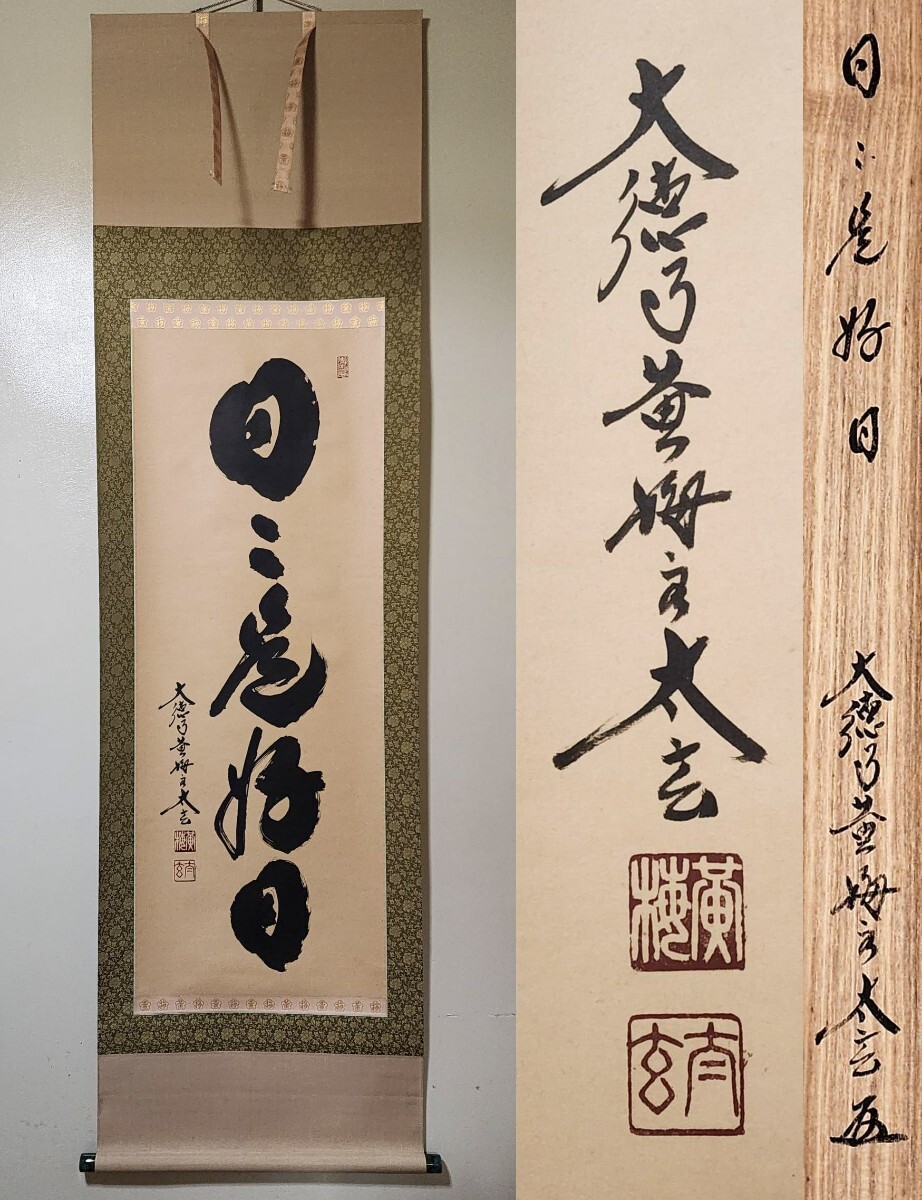 日々是好日
大徳寺黄梅主太玄
黄梅
太玄
大徳寺黄梅主太玄
黄梅
太玄
日々是好日
大徳寺黄梅主太玄